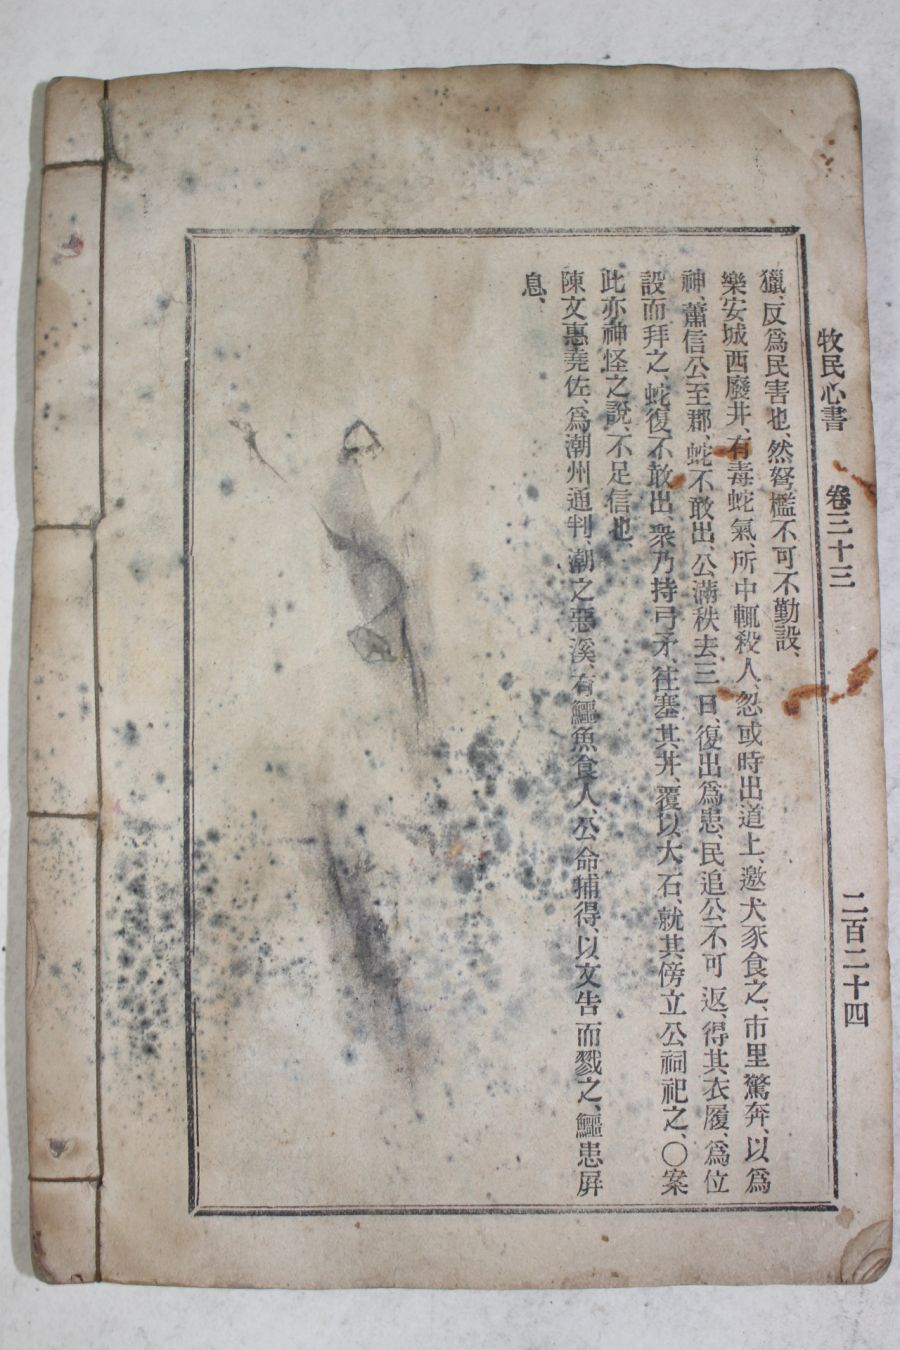 牧民心書　卷三十三　二百二十四
獵、反爲民害也、然弩檻不可不勤設、
樂安城西廢井、有毒蛇氣、所中輒殺人、忽或時出道上、邀犬豕食之、市里驚奔、以爲
神、蕭信公至郡、蛇不敢出、公滿秩去三日、復出爲患、民追公不可返、得其衣履、爲位
設而拜之、蛇復不敢出、衆乃持弓矛、往塞其井、覆以大石、就其傍立公祠祀之、〇案
此亦神怪之說、不足信也、
陳文惠堯佐、爲潮州通判、潮之惡溪、有鱷魚食人、公命捕得、以文告而戮之、鱷患屛
息、